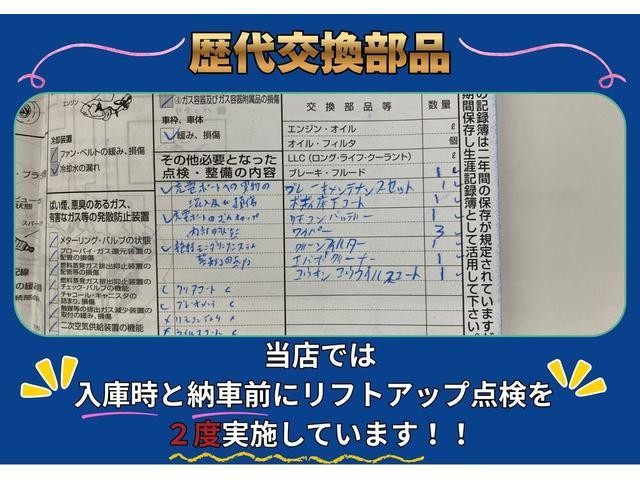 歴代交換部品
エンジン
④ガス容器及びガス容器附属品の損傷
車枠、車体
緩み、損傷
その他必要となった
点検・整備の内容
冷却装置
ファン・ベルトの緩み、損傷
冷却水の漏れ
ばい煙、悪臭のあるガス、
有害なガス等の発散防止装置
メターリング・バルブの状態
ブローバイ・ガス還元装置の
配管の損傷
燃料蒸発ガス排出抑止装置の
配管等の損傷
燃料蒸発ガス排出抑止装置の
チェック・バルブの機能
チャコール・キャニスタの
詰まり、損傷
触媒等の排出ガス減少装置の
取付の緩み、損傷
二次空気供給装置の機能
交換部品等 数量
エンジン・オイル ℓ
オイル・フィルタ 個
LLC（ロング・ライフ・クーラント） ℓ
ブレーキ・フルード 1
ブレーキメンテナンスセット 1
リモコンバッテリー 1
ワイパー 3
クリーンフィルター 1
エバポクリーナー 1
の記録簿は二年間の保存が規定されていますが
期間保存し生涯記録簿として活用して下さい。
当店では
入庫時と納車前にリフトアップ点検を
２度実施しています！！